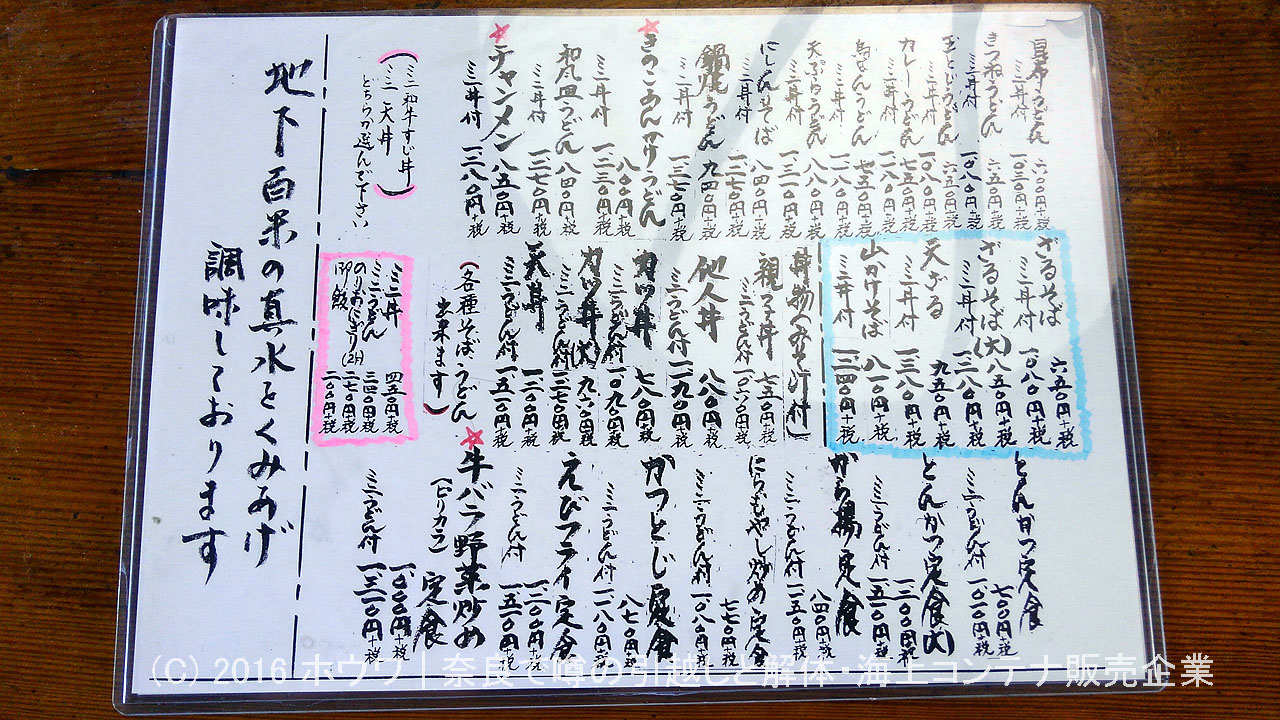 昆布うどん 六〇〇円+税
ミニ丼付 一、〇三〇円+税
きつねうどん 六五〇円+税
ミニ丼付 一、〇八〇円+税
玉とじうどん 六五〇円+税
ミニ丼付 一、〇八〇円+税
カレーうどん 七五〇円+税
ミニ丼付 一、一八〇円+税
鳥なんうどん 七五〇円+税
ミニ丼付 一、一八〇円+税
天ぷらうどん 八八〇円+税
ミニ丼付 一、三一〇円+税
にしんそば 八四〇円+税
ミニ丼付 一、二七〇円+税
鍋焼うどん 九四〇円+税
ミニ丼付 一、三七〇円+税
きのこあんかけうどん 八〇〇円+税
ミニ丼付 一、二三〇円+税
和風皿うどん 八四〇円+税
ミニ丼付 一、二七〇円+税
チャンメン 八五〇円+税
ミニ丼付 一、二八〇円+税
(ミニ和牛すじ丼
ミニ天丼)
どちらか選んで下さい
ざるそば 六五〇円+税
ミニ丼付 一、〇八〇円+税
ざるそば(大) 八五〇円+税
ミニ丼付 一、二八〇円+税
天ざる 九五〇円+税
ミニ丼付 一、三八〇円+税
山かけそば 八一〇円+税
ミニ丼付 一、二四〇円+税
丼物(みそ汁付)
親子丼 七五〇円+税
ミニうどん付 一、〇六〇円+税
他人丼 八八〇円+税
ミニうどん付 一、一九〇円+税
カツ丼 七八〇円+税
ミニうどん付 一、〇九〇円+税
カツ丼(大) 九六〇円+税
ミニうどん付 一、二七〇円+税
天丼 一、二〇〇円+税
ミニうどん付 一、五一〇円+税
(各種そば、うどん
出来ます)
ミニ丼 四五〇円+税
ミニうどん 三四〇円+税
のりおにぎり(2ヶ) 二七〇円+税
御飯 二〇〇円+税
とんかつ定食 七〇〇円+税
ミニうどん付 一、〇一〇円+税
とんかつ定食(大) 一、二〇〇円+税
ミニうどん付 一、五一〇円+税
から揚定食 八四〇円+税
ミニうどん付 一、一五〇円+税
にらもやし炒め定食 七七〇円+税
ミニうどん付 一、〇八〇円+税
かつとじ定食 八七〇円+税
ミニうどん付 一、一八〇円+税
えびフライ定食 一、二〇〇円+税
ミニうどん付 一、五一〇円+税
牛バラ野菜炒め
(ピリカラ) 定食 一、〇〇〇円+税
ミニうどん付 一、三一〇円+税
地下百米の真水をくみあげ
調味しております
(C) 2016 ホウワ | 奈良で噂の引越しと解体・海上コンテナ販売企業